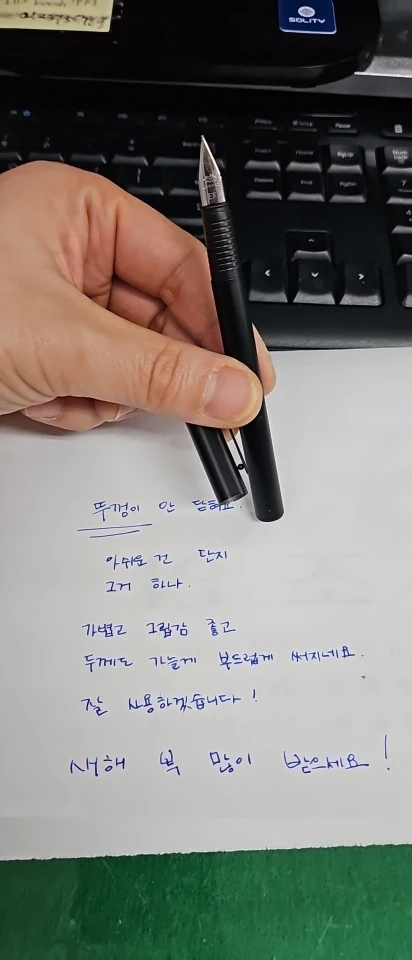 SOLITY
Pause
Insert
Home
PgUp
Num Lock
Delete
End
PgDn
7
뚜껑이 안 닫혀요.
아쉬운 건 단지
그거 하나.
가볍고 그립감 좋고
두께도 가늘게 부드럽게 써지네요.
잘 사용하겠습니다!
새해 복 많이 받으세요!